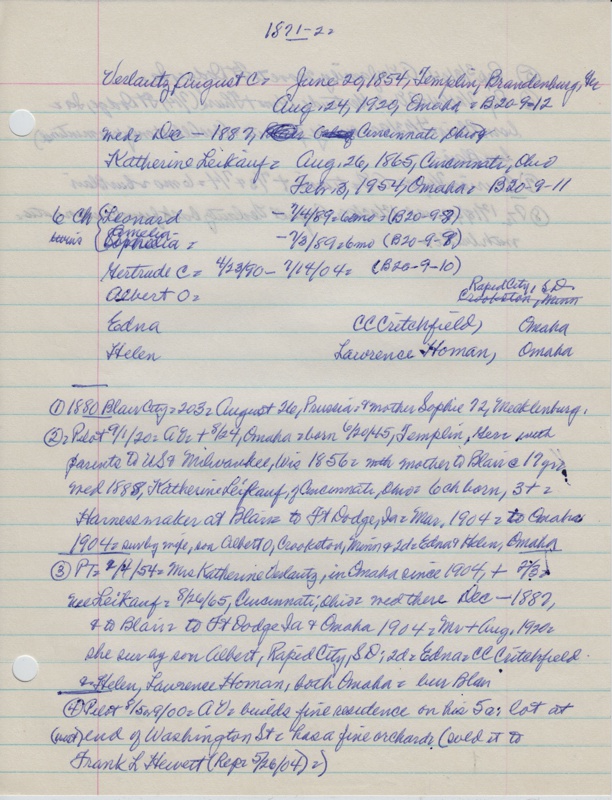 1871-22
Verlautz, August C = June 20, 1854, Templin, Brandenburg, Ger
Aug. 24, 1920, Omaha = B20-9-12
med = Dec - 1887, Cincinnati, Ohio
Katherine Leikauf = Aug, 26, 1865, Cincinnati, Ohio
Feb 3, 1954, Omaha = B20-9-11
6 Ch { Leonard - 7/4/89 = 6mo = (B20-9-8)
twins { Amelia -
Sophelia = - 7/3/89 = 6mo (B20-9-8)
Gertrude C = 4/23/90 - 7/14/04 = (B20-9-10)
Albert O = Rapid City, S.D.
Crookston, Minn
Edna CC Critchfield, Omaha
Helen Lawrence Homan, Omaha
① 1880 Blair City = 203 = August 26, Prussia, & mother Sophie 72, Mecklenburg.
② = Pilot 9/1/20 = A.V. + 8/24, Omaha = born 6/20/45, Templin, Ger = with
parents to US & Milwaukee, Wis 1856 = with mother to Blair c 17 yr =
med 1888, Katherine Leikauf, of Cincinnati, Ohio = 6 ch born, 3 + =
Harnessmaker at Blair = to Ft Dodge, Ia = Mar, 1904 = to Omaha
1904 = surv by wife, son Albert O, Crookston, Minn & 2d = Edna & Helen, Omaha
③ PT = 2/4/54 = Mrs Katherine Verlautz, in Omaha since 1904, + 2/3 =
nee Leikauf = 8/26/65, Cincinnati, Ohio = med there Dec - 1887,
& to Blair = to Ft Dodge Ia & Omaha 1904 = Mr + Aug. 1920 =
she surv by son Albert, Rapid City, S.D; 2d = Edna = CC Critchfield
& Helen, Lawrence Homan, both Omaha = bur Blair
④ Pilot 8/15 = 9/00 = A.V. = builds fine residence on his 5a; lot at
(west) end of Washington St = has a fine orchard = (sold it to
Frank L Hewett (Rep = 5/26/04) = )